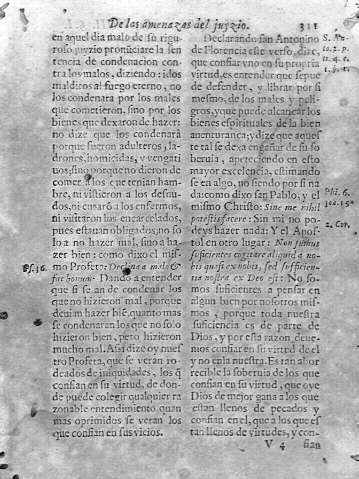 De las amenazas del juyzio. 311
en aquel dia malo de su rigu-
roso juyzio pronũciare la sen
tencia de condenacion con-
tra los malos, diziendo: idos
malditos al fuego eterno, no
los condenara por los males
que cometieron, sino por los
bienes que dexaron de hazer:
no dize que los condenarà
porque fueron adulteros, la-
drones, homicidas, y vengati
uos; sino porque no dieron de
comer a los que tenian ham-
bre, ni vistieron a los desnu-
dos, ni curarõ a los enfermos,
ni visitaron los encarcelados,
pues estauan obligados, no so
lo a no hazer mal, sino a ha-
zer bien: como dixo el mis-
mo Profeta: Declina a malo &
fac bonum. Dando a entender
que si se an de condenar los
que no hizieron mal, porque
dexarõ hazer biẽ, quanto mas
se condenaran los que no solo
hizieron bien, pero hizieron
mucho mal. Assi dize oy nues-
tro Profeta, que se veràn ro-
deados de iniquidades, los q̃
confian en su virtud, de don-
de puede colegir qualquier ra
zonable entendimiento quan
mas oprimidos se veran los
que confian en sus vicios.
Psal. 36.
Declarando san Antonino
de Florencia este verso, dize,
que confiar vno en su propria
virtud, es entender que sepue
de defender, y librar por si
mesmo, de los males y peli-
gros, y que puede alcançar los
bienes espirituales de la bien
auenturança; y dize que aques
te tal se dexa engañar de su so
beruia, apeteciendo en esto
mayor excelencia, estimando
se en algo, no siendo por si na
da: como dixo san Pablo, y el
mismo Christo: Sine me nihil
potestis facere: Sin mi no po-
deys hazer nada: Y el Apos-
tol en otro lugar: Non sumus
sufficientes cogitare aliquid a no-
bis quasi ex nobis, sed sufficien-
tia nostra ex Deo est: No so-
mos suficientes a pensar en
algun bien por nosotros mis-
mos, porque toda nuestra
suficiencia es de parte de
Dios, y por esta razon, deue-
mos confiar en su virtud de el
y no en la nuestra. Es tan abor
recible la soberuia de los que
confian en su virtud, que oye
Dios de mejor gana a los que
estan llenos de pecados y
confian en el, que a los que es
tan llenos de virtudes, y con-
V 4 fian
2. Cor.